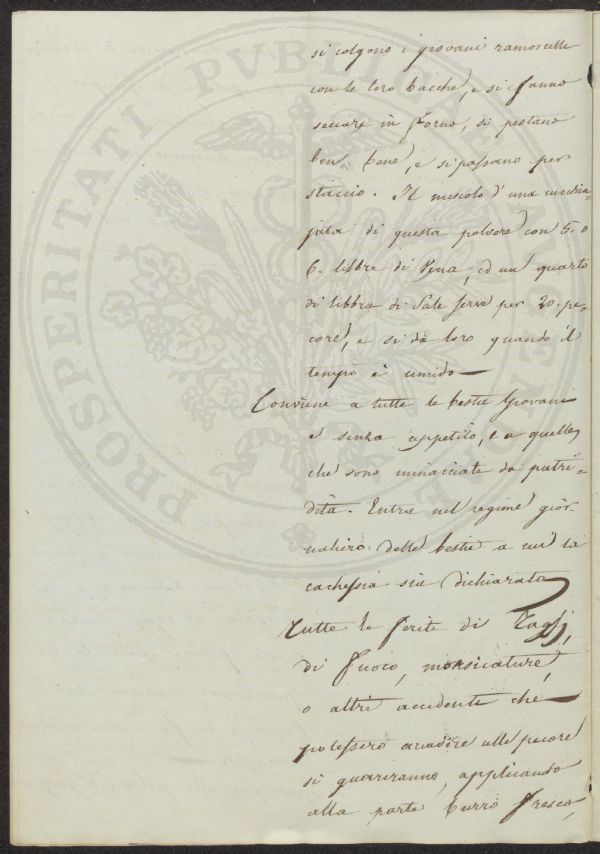 si colgono i giovani ramoscelli
con le loro bacche, e si fanno
seccare in forno, si pestano
ben bene, e si passano per
staccio. Il mescolo d'una cucchia-
jata di questa polvere con 5. o
6. libbre di Vena, ed un quarto
di libbra di Sale serve per 20. pe-
core, e si dà loro quando il
tempo è umido
Conviene a tutte le bestie giovani
e senza appetito, e a quelle
che sono minacciate da putri-
dità. Entra nel regime gior-
naliero delle bestie a cui la
cachessia sia dichiarata
Tutte le ferite di Taglj,
di fuoco, morsicature,
o altri accidenti che
potessero accadere alle pecore
si guariranno, applicando
alla parte burro fresco,
PROSPERITATI PUBLICAE AUGENDAE